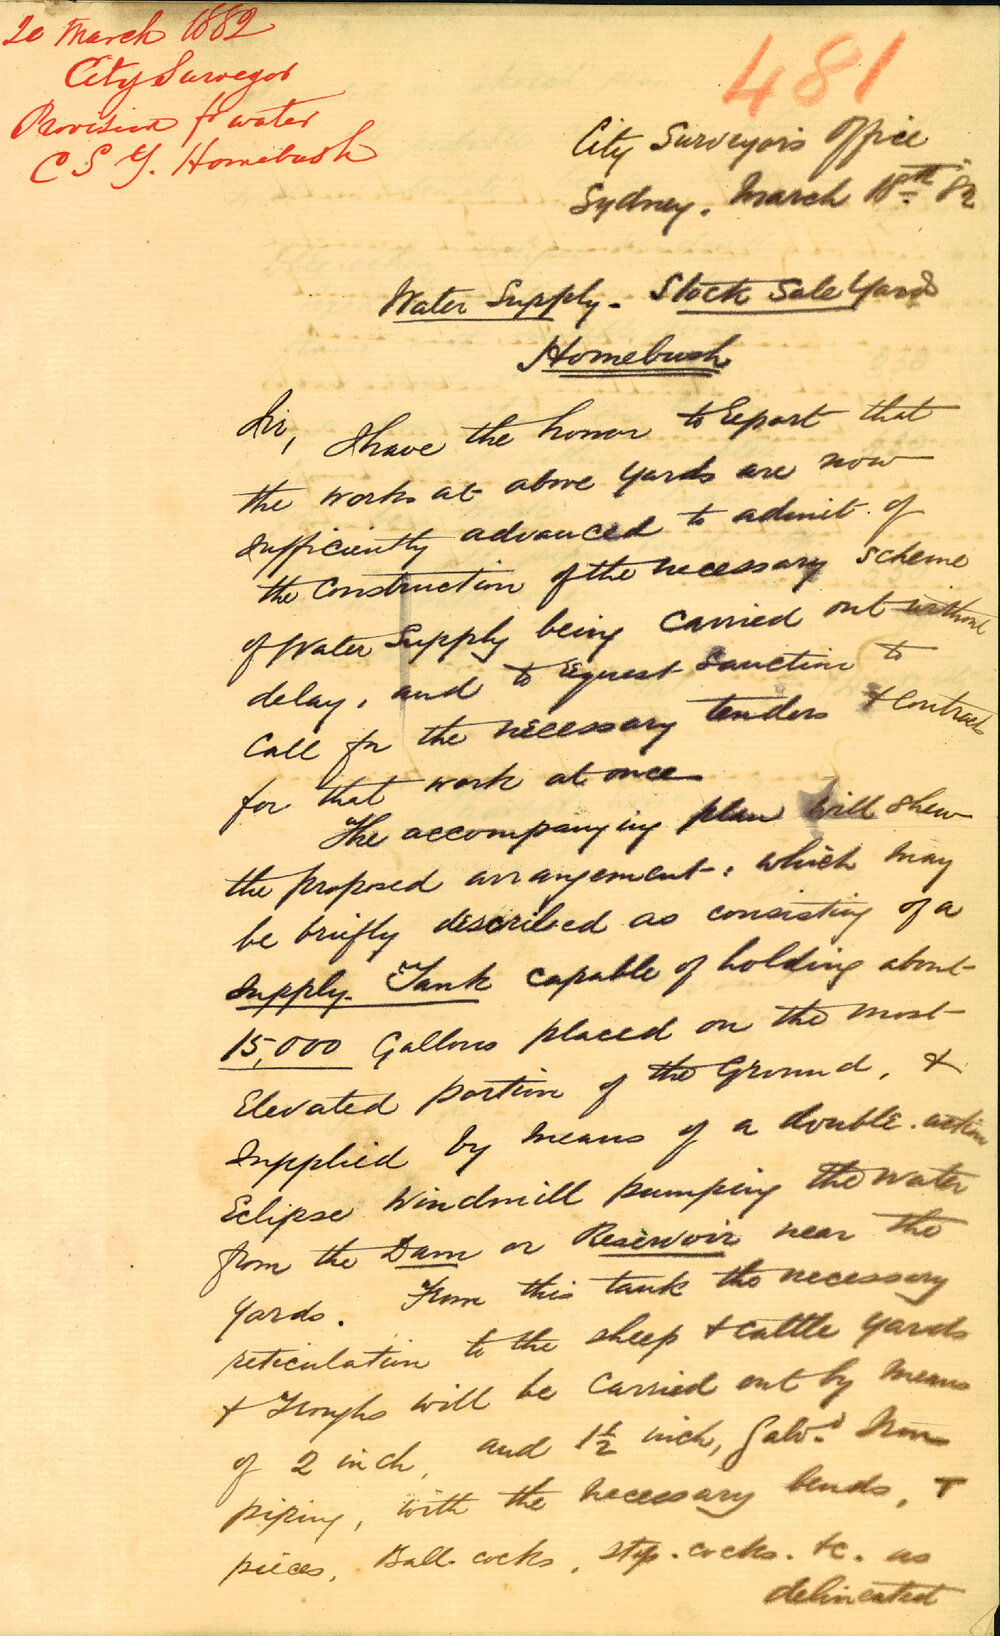 20 March 1882
City Surveyor
Provision for water
C S Y. Homebush
481
City Surveyor's Office
Sydney. March 18th '82
Water Supply - Stock Sale Yards
Homebush
Sir, I have the honor to report that
the works at above yards are now
sufficiently advanced to admit of
the construction of the necessary scheme
of Water Supply being carried out without
delay, and to request sanction to
call for the necessary tenders & contract
for that work at once
The accompanying plan will shew
the proposed arrangement, which may
be briefly described as consisting of a
Supply Tank capable of holding about
15,000 Gallons placed on the most
Elevated portion of the Ground, &
supplied by means of a double-action
Eclipse Windmill pumping the water
from the Dam or Reservoir near the
Yards. From this tank the necessary
reticulation to the sheep & cattle yards
& Troughs will be carried out by means
of 2 inch, and 1 1/2 inch, Galvd. Iron
piping, with the necessary bends, T
pieces, Ball-cocks, stop-cocks. &c. as
delineated